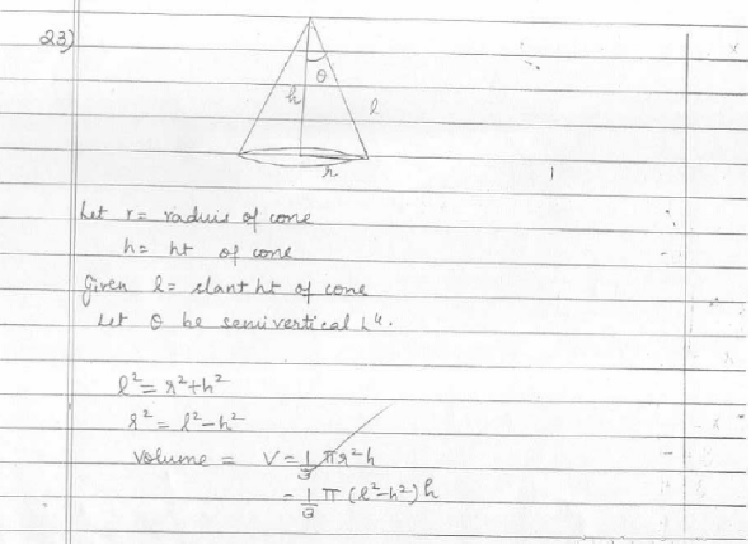 23)
θ
h
l
r
Let r = raduis of cone
h = ht of cone
Given l = slant ht of cone
Let θ be semivertical
l² = r² + h²
r² = l² - h²
Volume = V = 1/3 πr²h
= 1/3 π (l² - h²) h